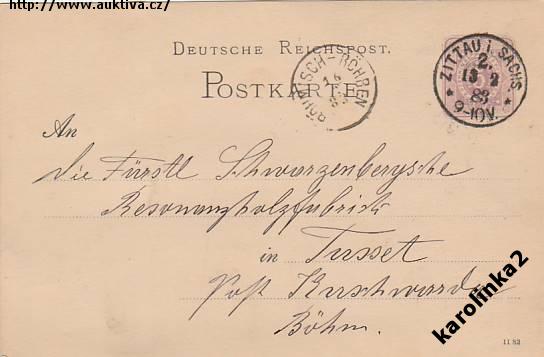 http://www.auktiva.cz/
DEUTSCHE REICHSPOST.
POSTKARTE
BÖHMISCH-RÖHREN
16
83
ZITTAU i. SACHS.
2.
13 2
83
9-10V.
An
die Fürstl Schwarzenbergsche
Resonanzholzfabrik
in Tusset
Post Kuschwarda
Böhm.
11 82
karolinka2